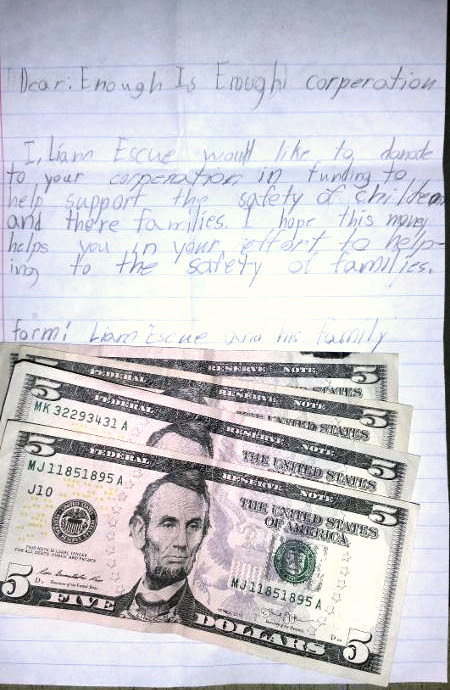 Dear: Enough Is Enough! corperation
I, Liam Escue would like to donate
to your corperation in funding to
help support the safety of children
and there families. I hope this money
helps you in your effort to help-
ing to the safety of families.
form: Liam Escue and his family
FEDERAL RESERVE NOTE 5
STATES
FEDERAL RESERVE NOTE 5
THE UNITED STATES
5 MK 32293431 A
FEDERAL RESERVE NOTE 5
THE UNITED STATES
5 FEDERAL RESERVE NOTE 5
MJ 11851895 A
THE UNITED STATES
OF AMERICA
J10
THIS NOTE IS LEGAL TENDER
FOR ALL DEBTS, PUBLIC AND PRIVATE
MJ 11851895 A
5 FIVE DOLLARS 5